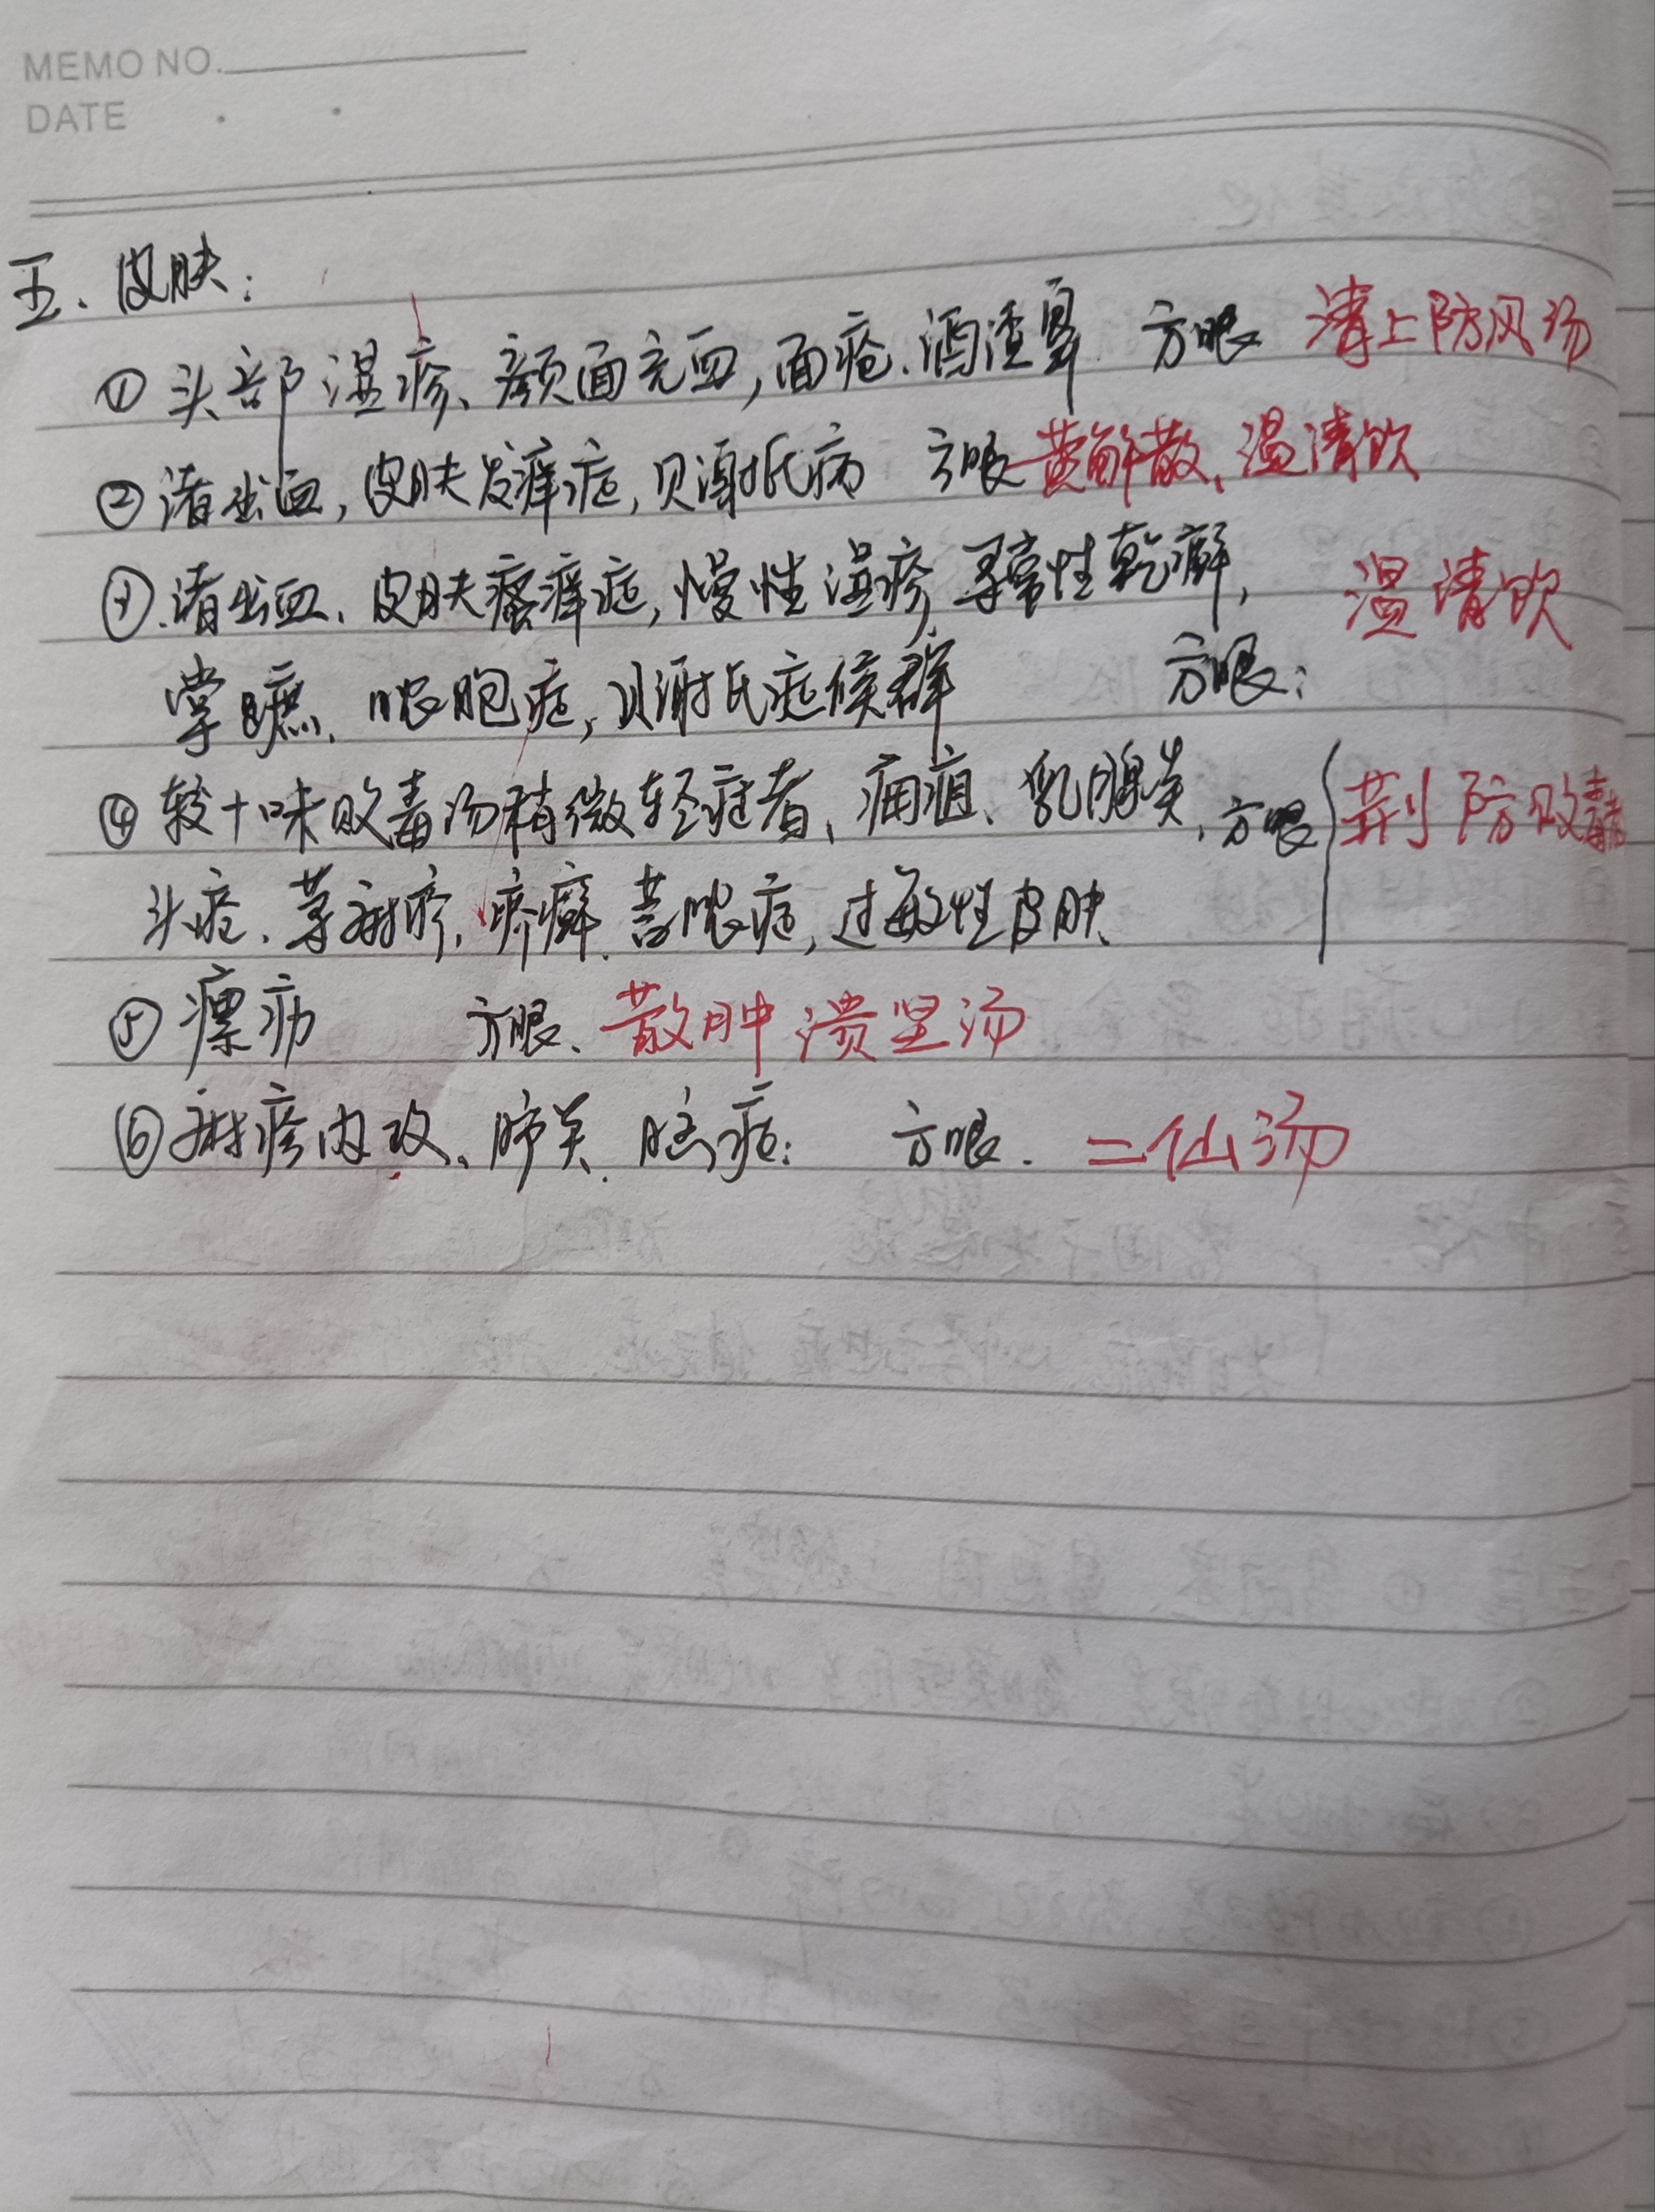 MEMO NO.
DATE
五、皮肤：
①头部湿疹、颜面充血，面疮、酒渣鼻 方眼 清上防风汤
②诸出血，皮肤发痒症，贝谢氏病 方眼 黄解散、温清饮
③.诸出血、皮肤瘙痒症，慢性湿疹，寻常性乾癣， 温清饮
掌蹠、脓胞症，贝谢氏症候群 方眼：
④较十味败毒汤稍微轻症者、痈疽、乳腺炎、方眼 荆防败毒
头疮、荨麻疹，疥癣、蓄脓症，过敏性皮肤、
⑤瘰疬 方眼、散肿溃坚汤
⑥麻疹内攻、肺炎、脑症： 方眼. 二仙汤